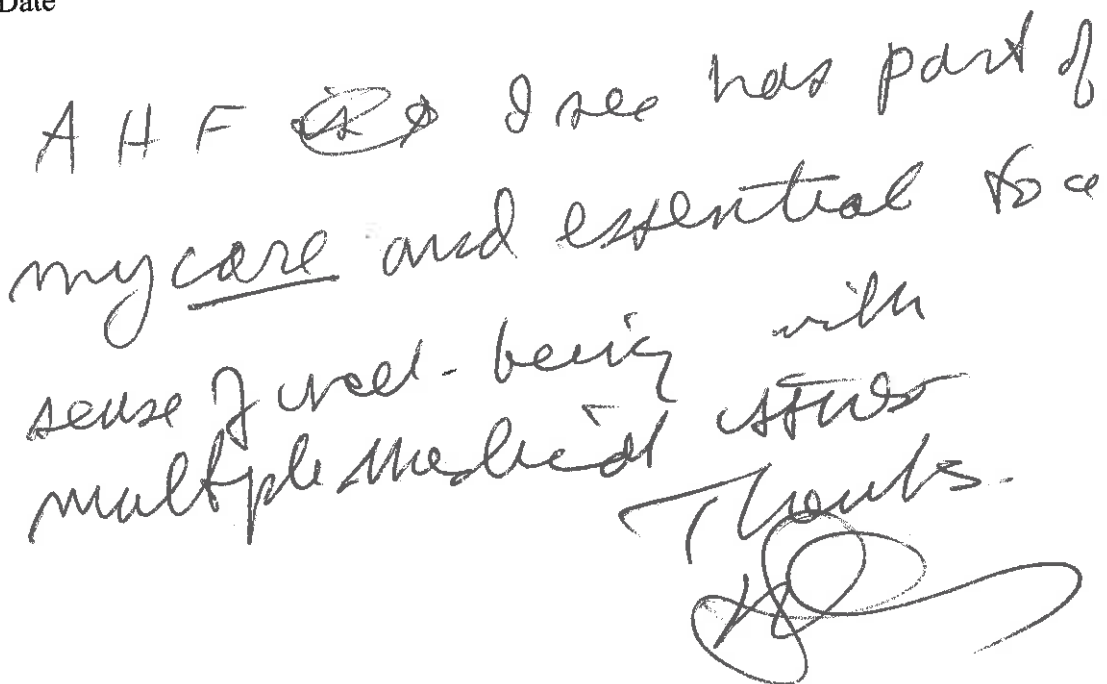 Date
AHF I see has part of
my care and essential to a
sense of well-being with
multiple medical
Thanks.